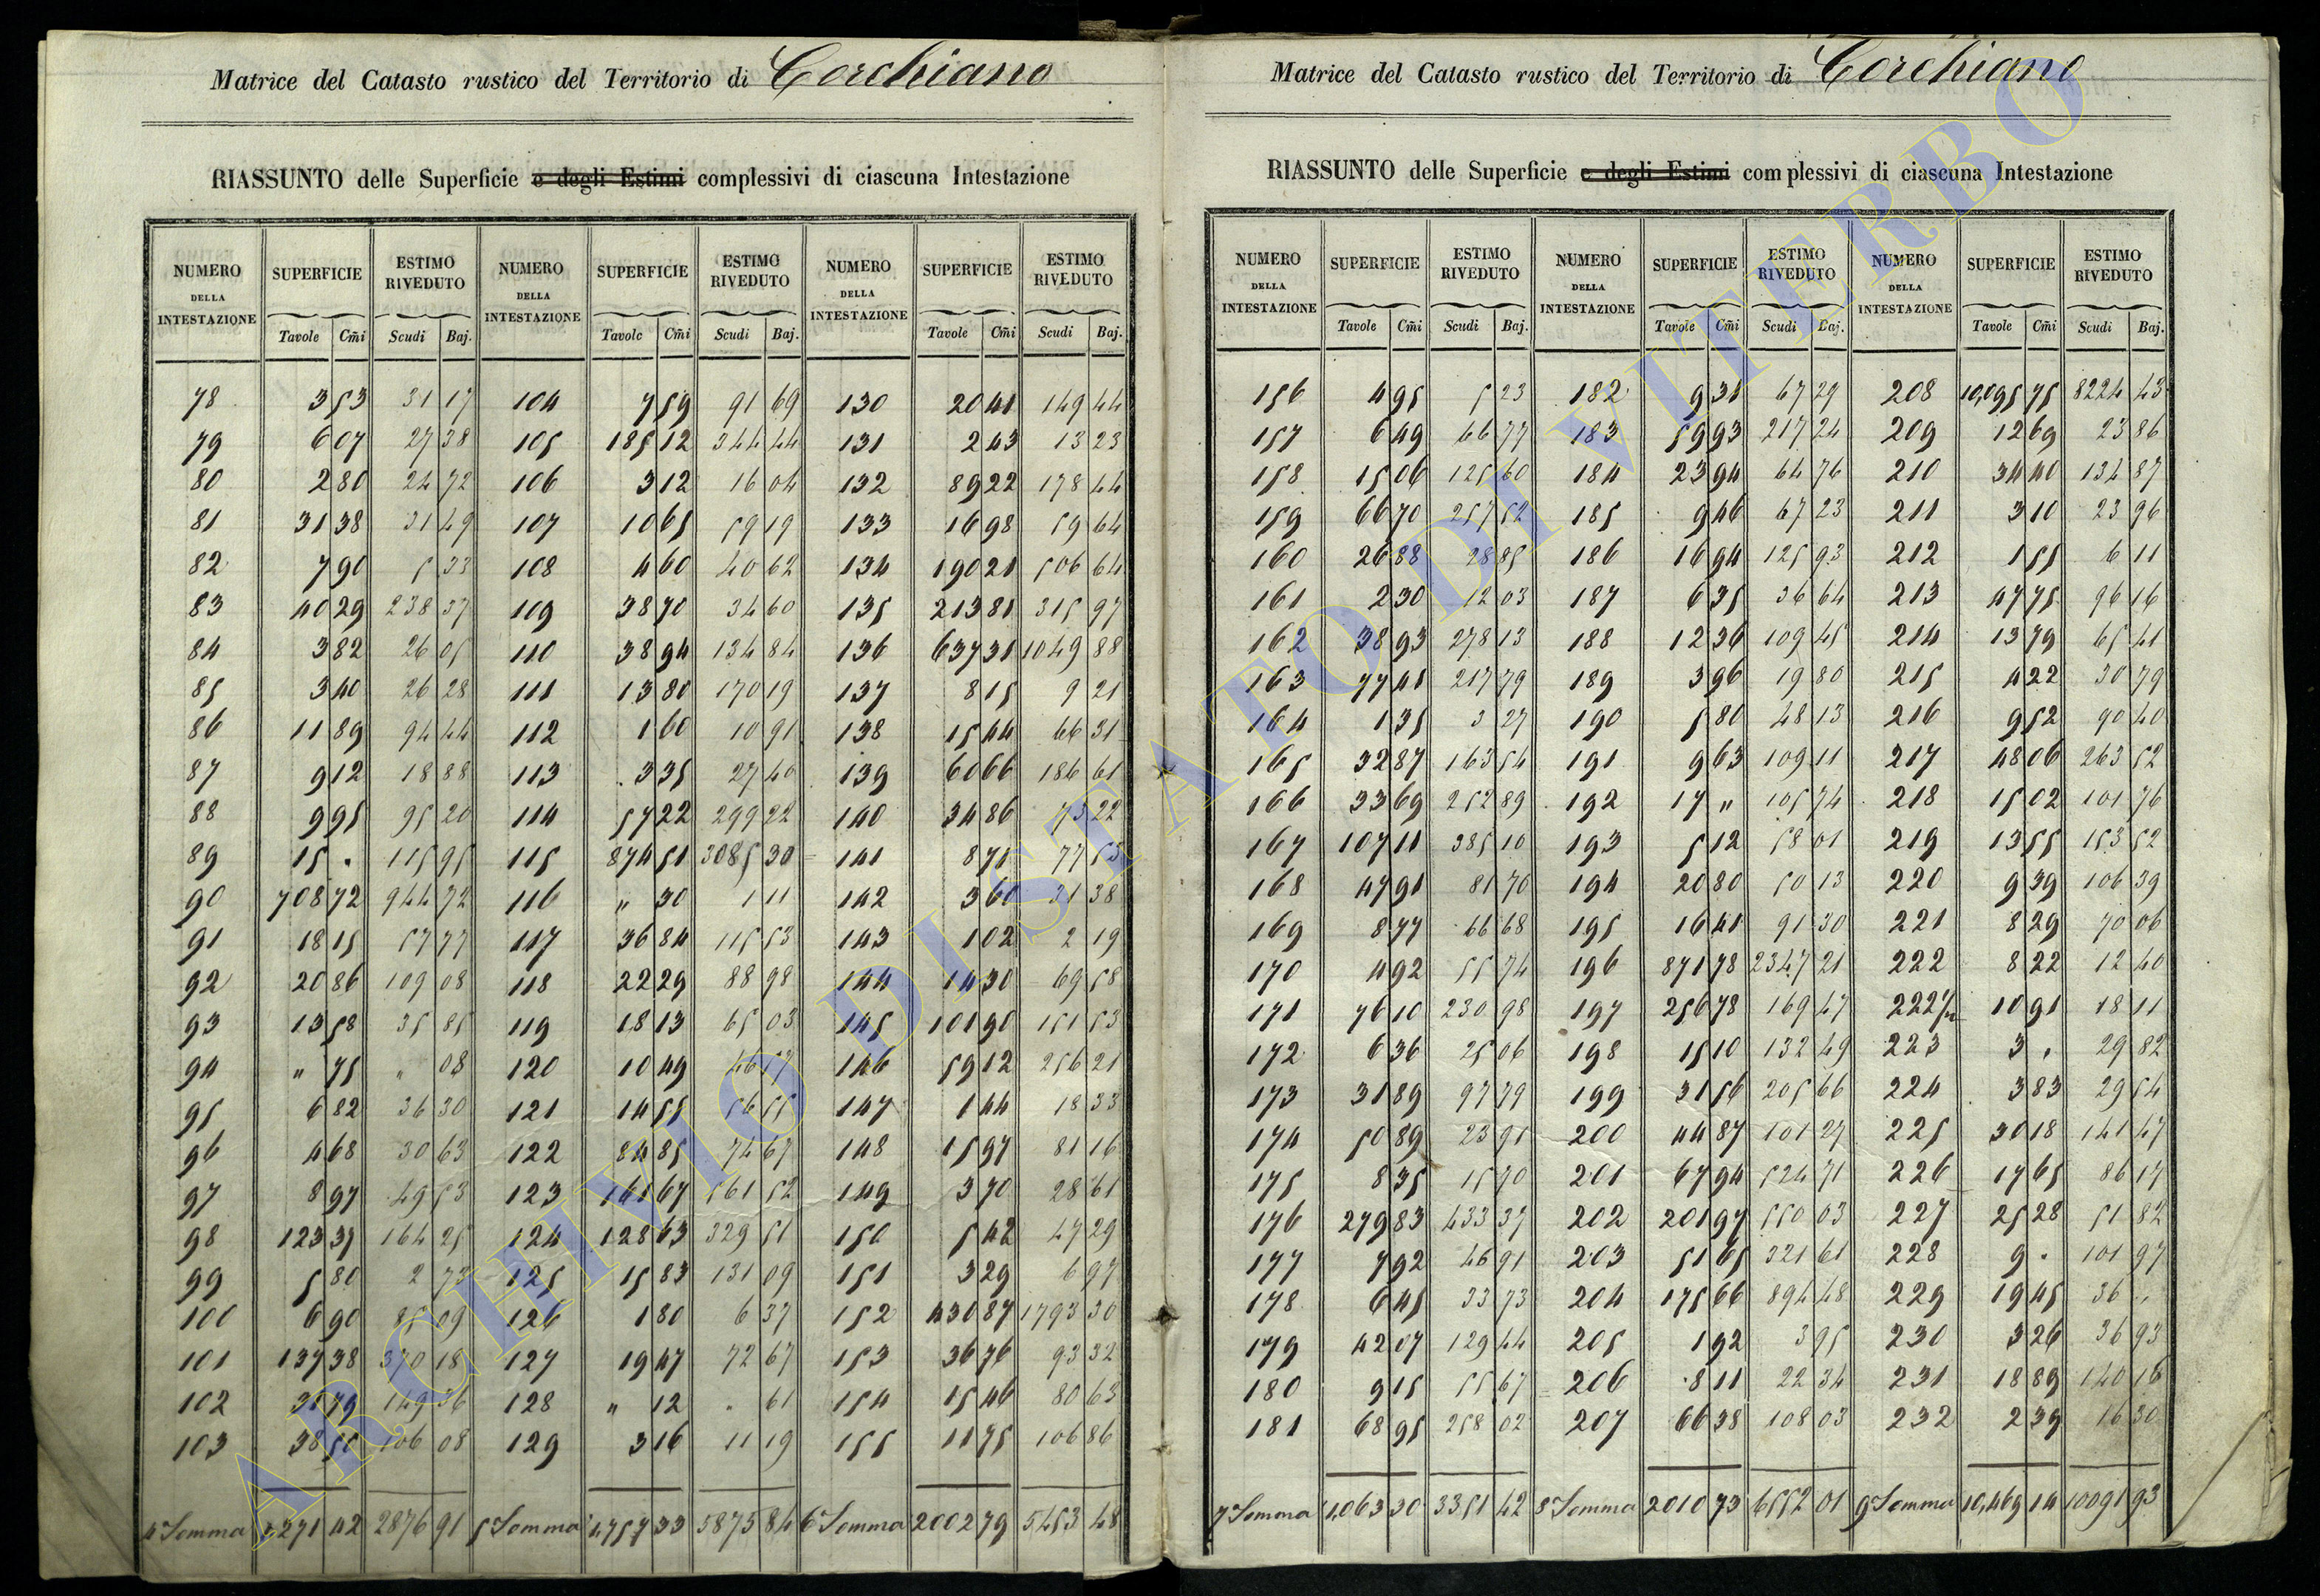 Matrice del Catasto rustico del Territorio di Corchiano
RIASSUNTO delle Superficie e degli Estimi complessivi di ciascuna Intestazione
NUMERO DELLA INTESTAZIONE SUPERFICIE ESTIMO RIVEDUTO NUMERO DELLA INTESTAZIONE SUPERFICIE ESTIMO RIVEDUTO NUMERO DELLA INTESTAZIONE SUPERFICIE ESTIMO RIVEDUTO
Tavole Cmi Scudi Baj. Tavole Cmi Scudi Baj. Tavole Cmi Scudi Baj.
78 3 53 31 17 104 7 59 91 69 130 20 41 149 44
79 6 07 27 38 105 185 12 344 44 131 2 43 13 23
80 2 80 24 72 106 3 12 16 04 132 89 22 178 44
81 31 38 31 49 107 10 65 59 19 133 16 98 59 64
82 7 90 5 33 108 4 60 40 62 134 190 21 506 64
83 40 29 238 37 109 38 70 34 60 135 213 81 315 97
84 3 82 26 05 110 38 94 134 84 136 637 31 1049 88
85 3 40 26 28 111 13 80 170 19 137 8 15 9 21
86 11 89 94 44 112 1 60 10 91 138 15 44 66 31
87 9 12 18 88 113 3 35 27 40 139 60 66 186 61
88 9 95 95 20 114 57 22 299 22 140 34 86 73 22
89 15 . 115 95 115 874 51 3085 30 141 8 71 77 53
90 708 72 944 72 116 " 30 1 11 142 3 60 31 38
91 18 15 57 77 117 36 84 115 53 143 1 02 2 19
92 20 86 109 08 118 22 29 88 98 144 14 30 69 58
93 13 58 35 85 119 18 13 65 03 145 101 90 151 53
94 " 75 " 08 120 10 49 146 59 12 256 21
95 6 82 36 30 121 14 55 56 55 147 1 44 18 33
96 4 68 30 63 122 84 85 74 67 148 15 97 81 16
97 8 97 49 53 123 161 67 561 52 149 3 70 28 61
98 123 37 164 25 124 128 63 329 51 150 5 42 47 29
99 5 80 2 73 125 15 83 131 09 151 3 29 6 97
100 6 90 85 09 126 1 80 6 37 152 430 87 1793 30
101 137 38 370 18 127 19 47 72 67 153 36 76 93 32
102 30 79 149 36 128 " 12 . 61 154 15 46 80 63
103 38 50 106 08 129 3 16 11 19 155 11 75 106 86
4a Somma 1271 42 2876 91 5a Somma 1,757 33 5875 84 6a Somma 2002 79 5453 48
Matrice del Catasto rustico del Territorio di Corchiano
RIASSUNTO delle Superficie e degli Estimi complessivi di ciascuna Intestazione
NUMERO DELLA INTESTAZIONE SUPERFICIE ESTIMO RIVEDUTO NUMERO DELLA INTESTAZIONE SUPERFICIE ESTIMO RIVEDUTO NUMERO DELLA INTESTAZIONE SUPERFICIE ESTIMO RIVEDUTO
Tavole Cmi Scudi Baj. Tavole Cmi Scudi Baj. Tavole Cmi Scudi Baj.
156 4 95 5 23 182 9 31 67 29 208 10,095 75 8224 43
157 6 49 66 77 183 59 93 217 24 209 12 69 23 86
158 15 06 125 60 184 23 94 64 76 210 34 40 134 87
159 66 70 257 52 185 9 46 67 23 211 3 10 23 96
160 26 88 28 85 186 16 94 125 93 212 1 55 6 11
161 2 30 12 03 187 6 35 36 64 213 47 75 96 16
162 38 93 278 13 188 12 36 109 45 214 13 79 65 41
163 77 41 217 79 189 3 96 19 80 215 4 22 30 79
164 1 35 3 27 190 5 80 48 13 216 9 52 90 40
165 32 87 163 54 191 9 63 109 11 217 48 06 263 52
166 33 69 252 89 192 17 " 105 74 218 15 02 101 76
167 107 11 385 10 193 5 12 58 01 219 13 55 153 52
168 47 91 81 70 194 20 80 50 13 220 9 39 106 39
169 8 77 66 68 195 16 41 91 30 221 8 29 70 06
170 4 92 55 74 196 871 78 2347 21 222 8 22 12 40
171 76 10 230 98 197 256 78 169 47 222 1/2 10 91 18 11
172 6 36 25 06 198 15 10 132 49 223 3 . 29 82
173 31 89 97 79 199 31 56 205 66 224 3 83 29 54
174 50 89 23 95 200 44 87 101 27 225 30 18 141 47
175 8 35 15 70 201 67 94 524 71 226 17 65 86 17
176 279 83 433 37 202 201 97 550 03 227 25 28 51 82
177 7 92 46 91 203 51 65 321 61 228 9 . 101 97
178 6 45 33 73 204 175 66 894 48 229 19 45 36 "
179 42 07 129 44 205 1 92 3 95 230 3 26 36 93
180 9 15 55 67 206 8 11 22 34 231 18 89 140 16
181 68 95 258 02 207 66 38 108 03 232 2 39 16 30
7a Somma 1,063 30 3351 42 8a Somma 2010 73 6552 01 9a Somma 10,469 14 10091 93
ARCHIVIO DI STATO DI VITERBO